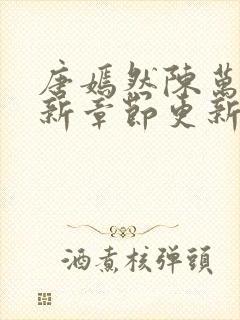 唐嫣然陳萬
新章節更新
酒煮核弹頭